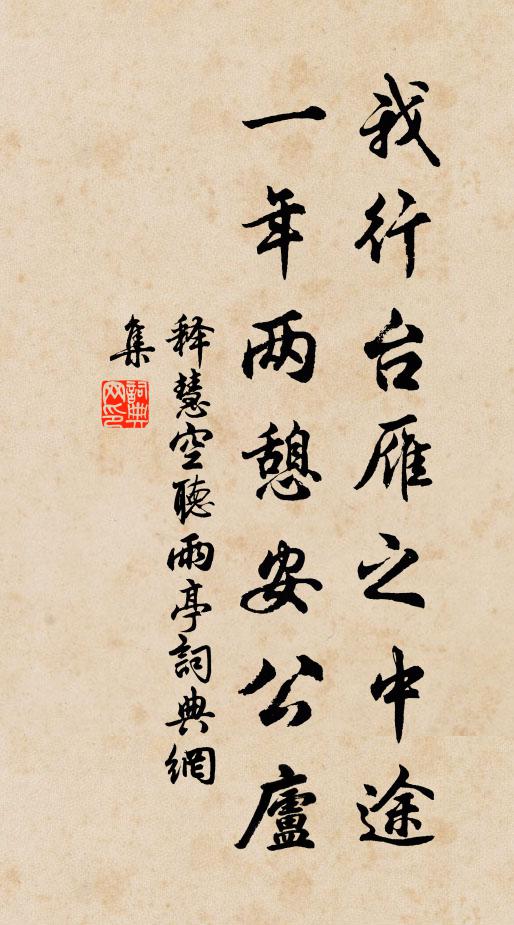 我行台雁之中途
一年两憩安公廬
释慧空聽雨亭詞典網
集
詞典网印